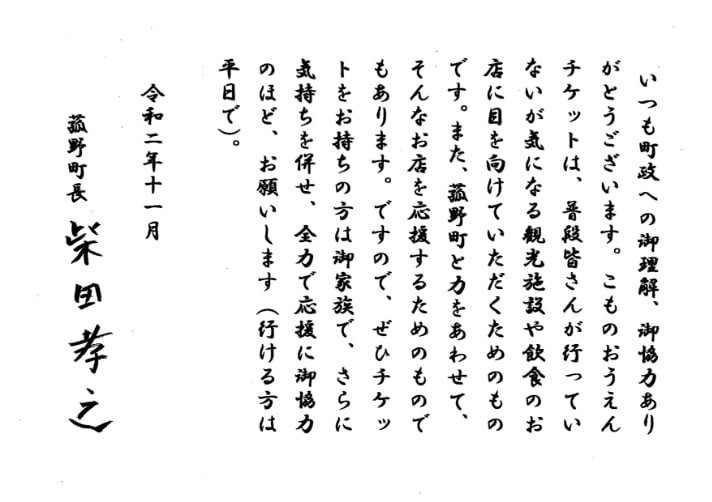 いつも町政への御理解、御協力あり
がとうございます。こものおうえん
チケットは、普段皆さんが行ってい
ないが気になる観光施設や飲食のお
店に目を向けていただくためのもの
です。また、菰野町と力をあわせて、
そんなお店を応援するためのもので
もあります。ですので、ぜひチケッ
トをお持ちの方は御家族で、さらに
気持ちを併せ、全力で応援に御協力
のほど、お願いします（行ける方は
平日で）。
令和二年十一月
菰野町長 柴田孝之